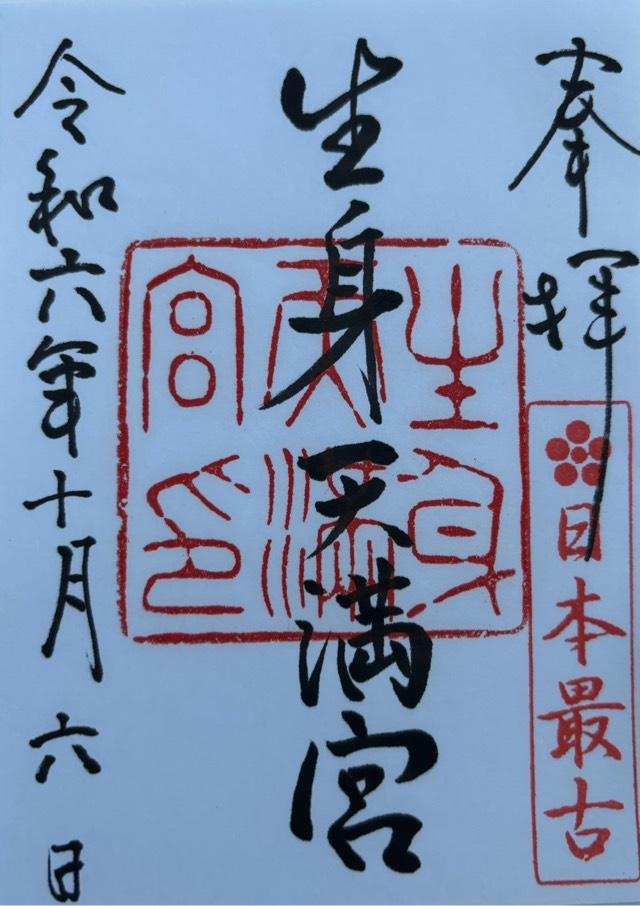 奉拝
日本最古
生身天満宮
生身天満宮印
令和六年十月六日